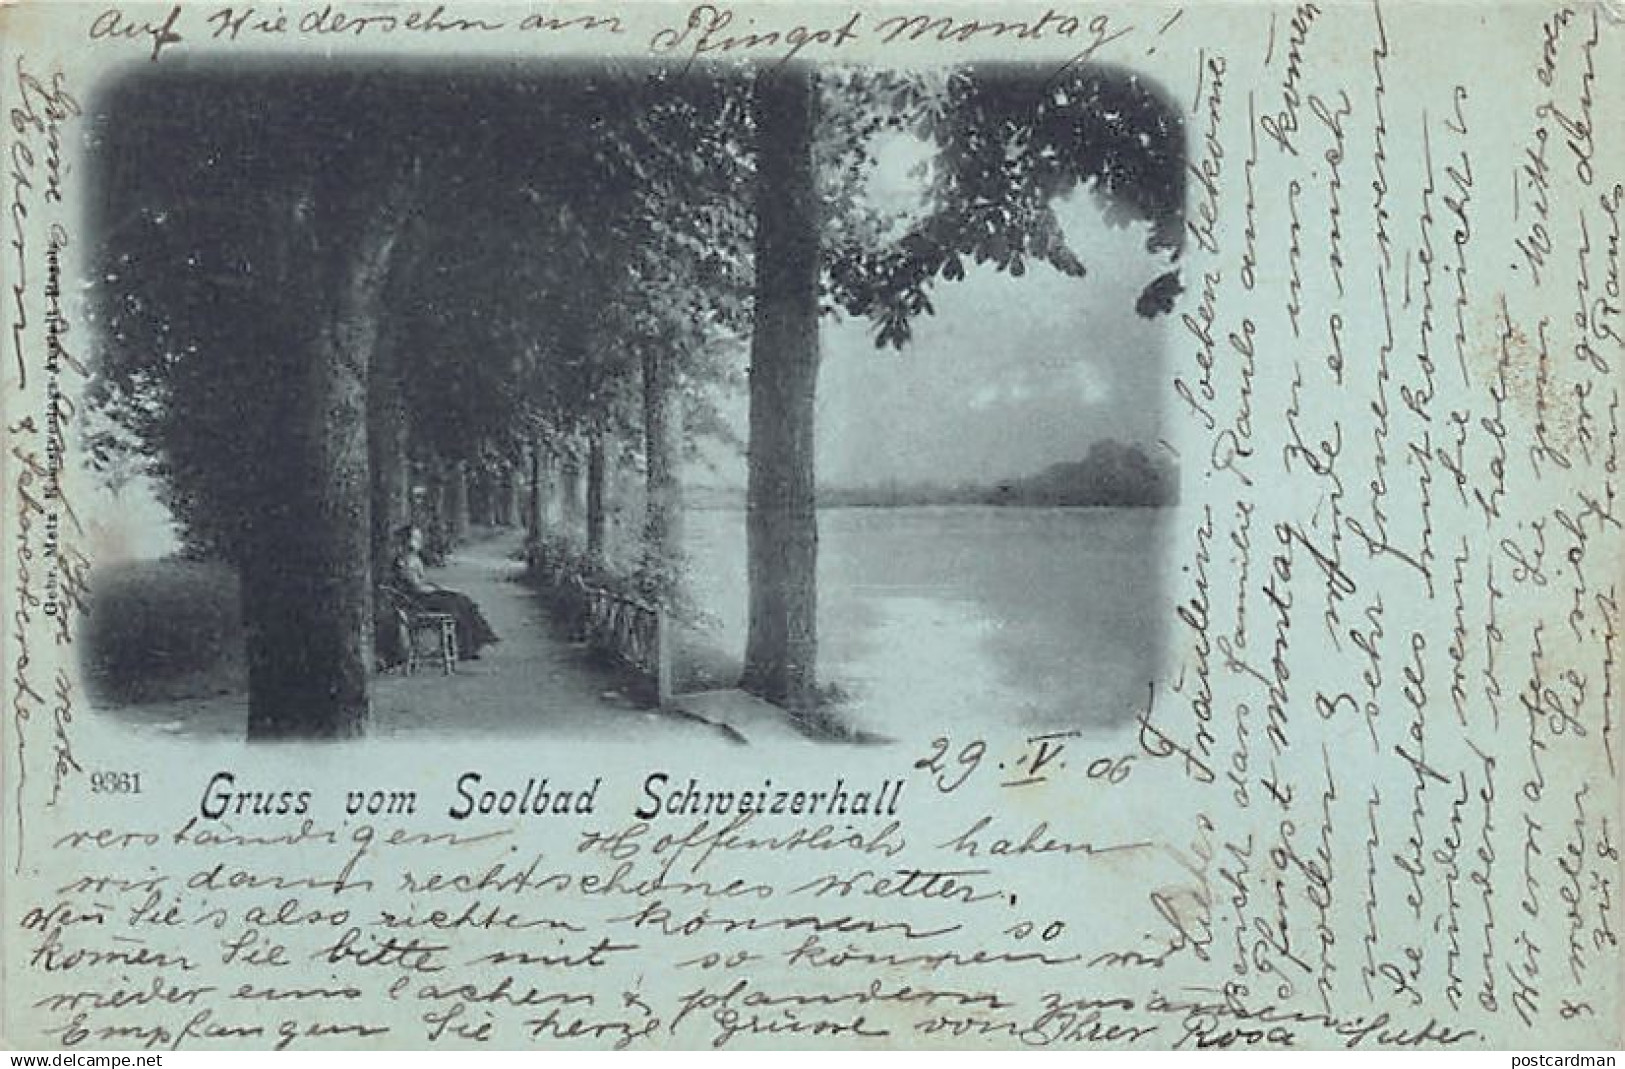 Auf Wiedersehn am Pfingst Montag!
Gruss vom Soolbad Schweizerhall
9361
Gebr. Metz
29. V. 06
Liebes Fräulein. Soeben bekome
Bericht dass familie Rauls am
Pfingst Montag zu uns kom̄en
wollen & würde es mich
nun sehr freuen wenn
Sie ebenfalls mitkom̄en
würden wenn Sie nicht s
anderes vorhaben.
Wir erwarten Sie zum Mittagessen
& wollen Sie sich gar denn
mit frau Rauls
verständigen. Hoffentlich haben
wir dann recht schönes Wetter.
Wen̄ Sie's also richten können so
kom̄en Sie bitte mit so können wir
wieder eins lachen & plaudern zusam̄en.
Empfangen Sie herzl. Grüsse von Ihrer Rosa Suter.
Eltern & Schwestern
postcardman
www.delcampe.net